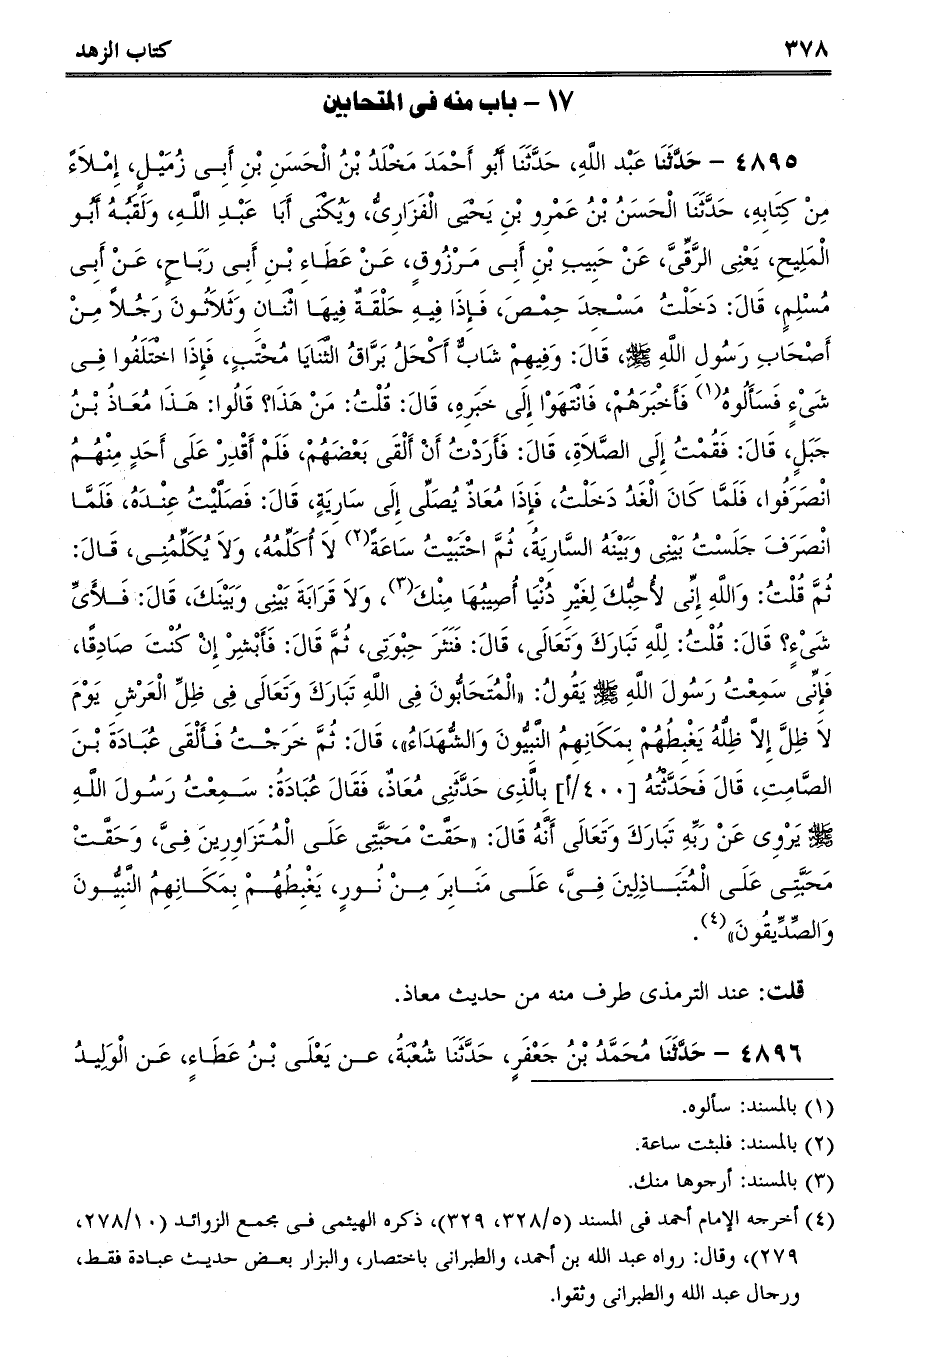 ٣٧٨ كتاب الزهد
١٧ - باب منه فى المتحابين
٤٨٩٥ - حَدَّثَنَا عَبْد اللَّهِ، حَدَّثَنَا أَبُو أَحْمَدَ مَخْلَدُ بْنُ الْحَسَنِ بْنِ أَبِى زُمَيْلٍ، إِمْلاَءً
مِنْ كِتَابِهِ، حَدَّثَنَا الْحَسَنُ بْنُ عَمْرِو بْنِ يَحْيَى الْفَزَارِىُّ، وَيُكْنَى أَبَا عَبْدِ اللَّهِ، وَلَقَبُهُ أَبُو
الْمَلِيحِ، يَعْنِى الرَّقِّىَّ، عَنْ حَبِيبِ بْنِ أَبِى مَرْزُوقٍ، عَنْ عَطَاءِ بْنِ أَبِى رَبَاحٍ، عَنْ أَبِى
مُسْلِمٍ، قَالَ: دَخَلْتُ مَسْجِدَ حِمْصَ، فَإِذَا فِيهِ حَلْقَةٌ فِيهَا اثْنَان وَثَلاَثُونَ رَجُلاً مِنْ
أَصْحَابِ رَسُولِ اللَّهِ ﷺ، قَالَ: وَفِيهِمْ شَابٌّ أَكْحَلُ بَرَّاقُ الثَّنَايَا مُحْتَبٍ، فَإِذَا اخْتَلَفُوا فِى
شَىْءٍ فَسَأَلُوهُ(١) فَأَخْبَرَهُمْ، فَانْتَهَوْا إِلَى خَبَرِهِ، قَالَ: قُلْتُ: مَنْ هَذَا؟ قَالُوا: هَذَا مُعَاذُ بْنُ
جَبَلٍ، قَالَ: فَقُمْتُ إِلَى الصَّلاَةِ، قَالَ: فَأَرَدْتُ أَنْ أَلْقَى بَعْضَهُمْ، فَلَمْ أَقْدِرْ عَلَى أَحَدٍ مِنْهُمُ
انْصَرَفُوا، فَلَمَّا كَانَ الْغَدُ دَخَلْتُ، فَإِذَا مُعَاذٌ يُصَلِّى إِلَى سَارِيَةٍ، قَالَ: فَصَلَّيْتُ عِنْدَهُ، فَلَمَّا
انْصَرَفَ جَلَسْتُ بَيْنِى وَبَيْنَهُ السَّارِيَةُ، ثُمَّ احْتَبَيْتُ سَاعَةً(٢) لاَ أُكَلِّمُهُ، وَلاَ يُكَلِّمُنِى، قَالَ:
ثُمَّ قُلْتُ: وَاللَّهِ إِنِّى لأُحِبُّكَ لِغَيْرِ دُنْيَا أُصِيبُهَا مِنْكَ(٣)، وَلاَ قَرَابَةَ بَيْنِى وَبَيْنَكَ، قَالَ: فَلأَىِّ
شَىْءٍ؟ قَالَ: قُلْتُ: لِلَّهِ تَبَارَكَ وَتَعَالَى، قَالَ: فَنَثَرَ حِبْوَتِى، ثُمَّ قَالَ: فَأَبْشِرْ إِنْ كُنْتَ صَادِقًا،
فَإِنِّى سَمِعْتُ رَسُولَ اللَّهِ ﷺ يَقُولُ: «الْمُتَحَابُّونَ فِى اللَّهِ تَبَارَكَ وَتَعَالَى فِى ظِلِّ الْعَرْشِ يَوْمَ
لاَ ظِلَّ إِلاَّ ظِلُّهُ يَغْبِطُهُمْ بِمَكَانِهِمُ النَّبِيُّونَ وَالشُّهَدَاءُ»، قَالَ: ثُمَّ خَرَجْتُ فَأَلْقَى عُبَادَةَ بْنَ
الصَّامِتِ، قَالَ فَحَدَّثْتُهُ [٤٠٠/أ] بِالَّذِى حَدَّثَنِى مُعَاذٌ، فَقَالَ عُبَادَةُ: سَمِعْتُ رَسُولَ اللَّهِ
ﷺ يَرْوِى عَنْ رَبِّهِ تَبَارَكَ وَتَعَالَى أَنَّهُ قَالَ: «حَقَّتْ مَحَبَّتِى عَلَى الْمُتَزَاوِرِينَ فِىَّ، وَحَقَّتْ
مَحَبَّتِى عَلَى الْمُتَبَاذِلِينَ فِىَّ، عَلَى مَنَابِرَ مِنْ نُورٍ، يَغْبِطُهُمْ بِمَكَانِهِمُ النَّبِيُّونَ
وَالصِّدِّيقُونَ»(٤).
قلت: عند الترمذى طرف منه من حديث معاذ.
٤٨٩٦ - حَدَّثَنَا مُحَمَّدُ بْنُ جَعْفَرٍ، حَدَّثَنَا شُعْبَةُ، عن يَعْلَى بْنُ عَطَاءٍ، عَنِ الْوَلِيدُ
(١) بالمسند: سألوه.
(٢) بالمسند: فلبثت ساعة.
(٣) بالمسند: أرجوها منك.
(٤) أخرجه الإمام أحمد فى المسند (٣٢٨/٥، ٣٢٩)، ذكره الهيثمى فى مجمع الزوائد (٢٧٨/١٠،
٢٧٩)، وقال: رواه عبد الله بن أحمد، والطبرانى باختصار، والبزار بعض حديث عبادة فقط،
ورجال عبد الله والطبرانى وثقوا.